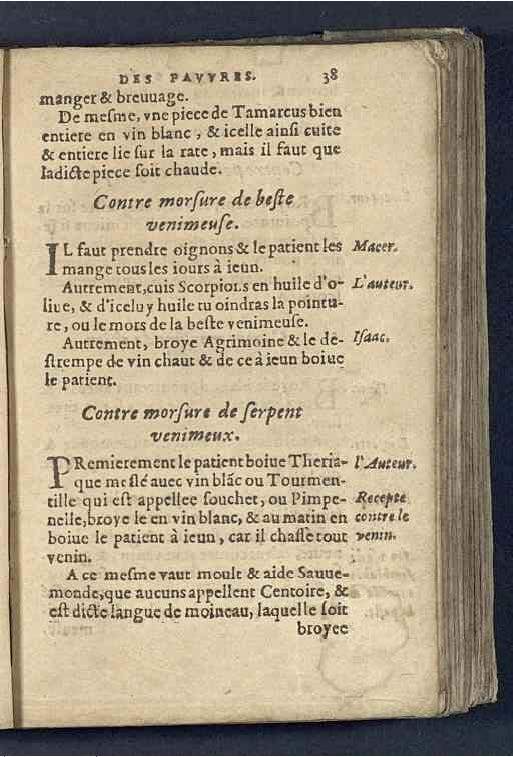 DES PAVVRES. 38
manger & breuuage.
De mesme, vne piece de Tamarcus bien
entiere en vin blanc, & icelle ainsi cuite
& entiere lie sur la rate, mais il faut que
ladicte piece soit chaude.
Contre morsure de beste
venimeuse.
IL faut prendre oignons & le patient les Macer.
mange tous les iours à ieun.
Autrement, cuis Scorpions en huile d'o- L'auteur.
liue, & d'iceluy huile tu oindras la pointu-
re, ou le mors de la beste venimeuse.
Autrement, broye Agrimoine & le de- Isaac.
strempe de vin chaut & de ce à ieun boiue
le patient.
Contre morsure de serpent
venimeux.
PRemierement le patient boiue Theria- l'Auteur.
que meslé auec vin blãc ou Tourmen-
tille qui est appellee souchet, ou Pimpe- Recepte
nelle, broye le en vin blanc, & au matin en contre le
boiue le patient à ieun, car il chasse tout venin.
venin.
A ce mesme vaut moult & aide Sauue-
monde, que aucuns appellent Centoire, &
est dicte langue de moineau, laquelle soit
broyee